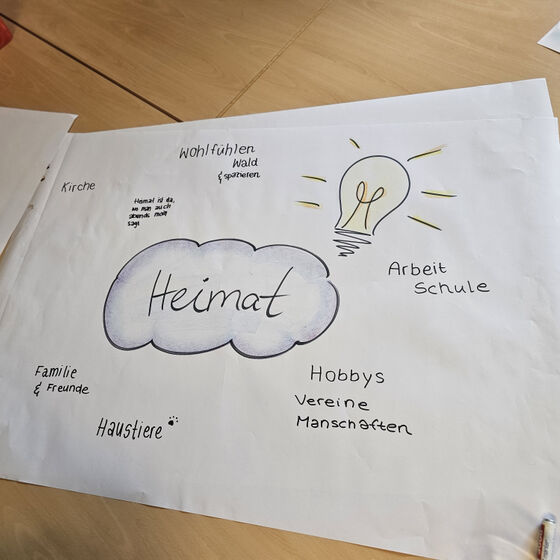 Wohlfühlen
Wald
& spazieren
Kirche
Heimat ist da,
wo man auch
abends moll
sagt
Heimat
Arbeit
Schule
Familie
& Freunde
Hobbys
Vereine
Manschaften
Haustiere